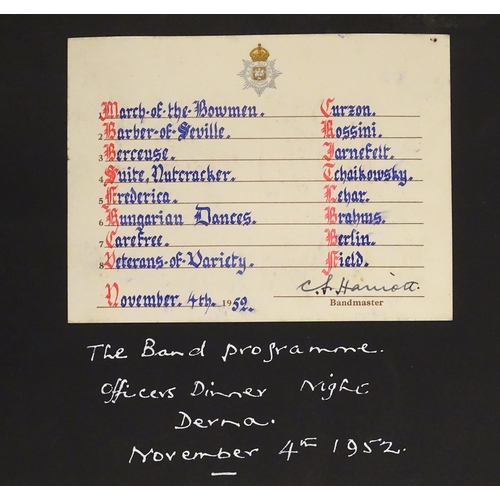 1 March-of-the-Bowmen. Curzon.
2 Barber-of-Seville. Rossini.
3 Berceuse. Jarnefelt.
4 Suite, Nutcracker. Tchaikowsky.
5 Frederica. Lehar.
6 Hungarian Dances. Brahms.
7 Carefree. Berlin.
8 Veterans-of-Variety. Field.
November. 4th. 1952. C. L. Harriott.
Bandmaster
The Band programme.
Officers Dinner Night
Derna.
November 4th 1952.